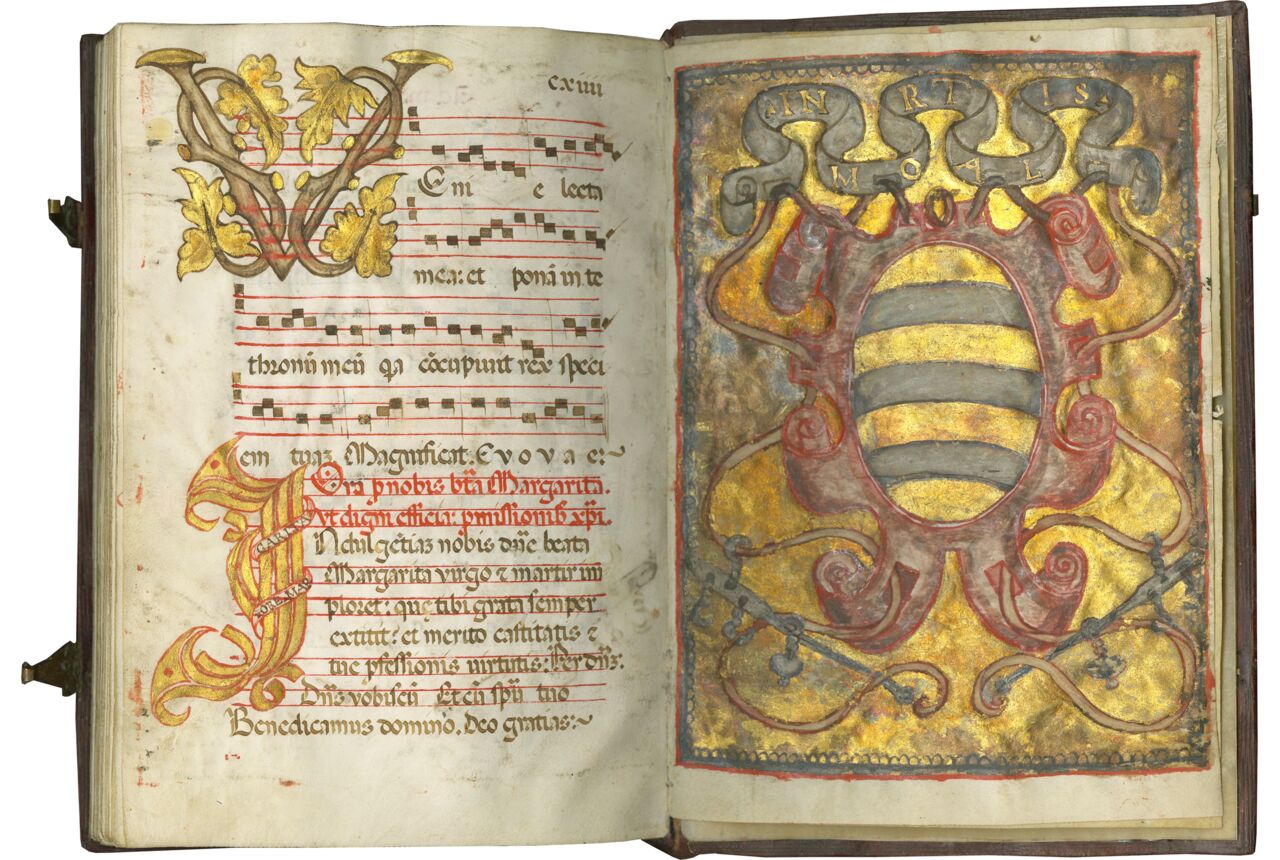 cxiiii
Veni e lecta
mea: et ponā in te
thronū meū qa cōcupiuit rex speci
em tuaȝ Magnificat. E v o v a e:~
Ora p nobis bta Margarita.
Vt digni efficia: pmissionib xpi.
Indulgētiaȝ nobis dne beata
CARINA
Margarita virgo ⁊ martir im
ploret: quę tibi grata semper
extitit: et merito castitatis ⁊
tue pfessionis uirtutis: Per dnȝ.
Dns vobiscū Et cū spū tuo
Benedicamus domino. Deo gratias:~
IN RT IS
MOAL